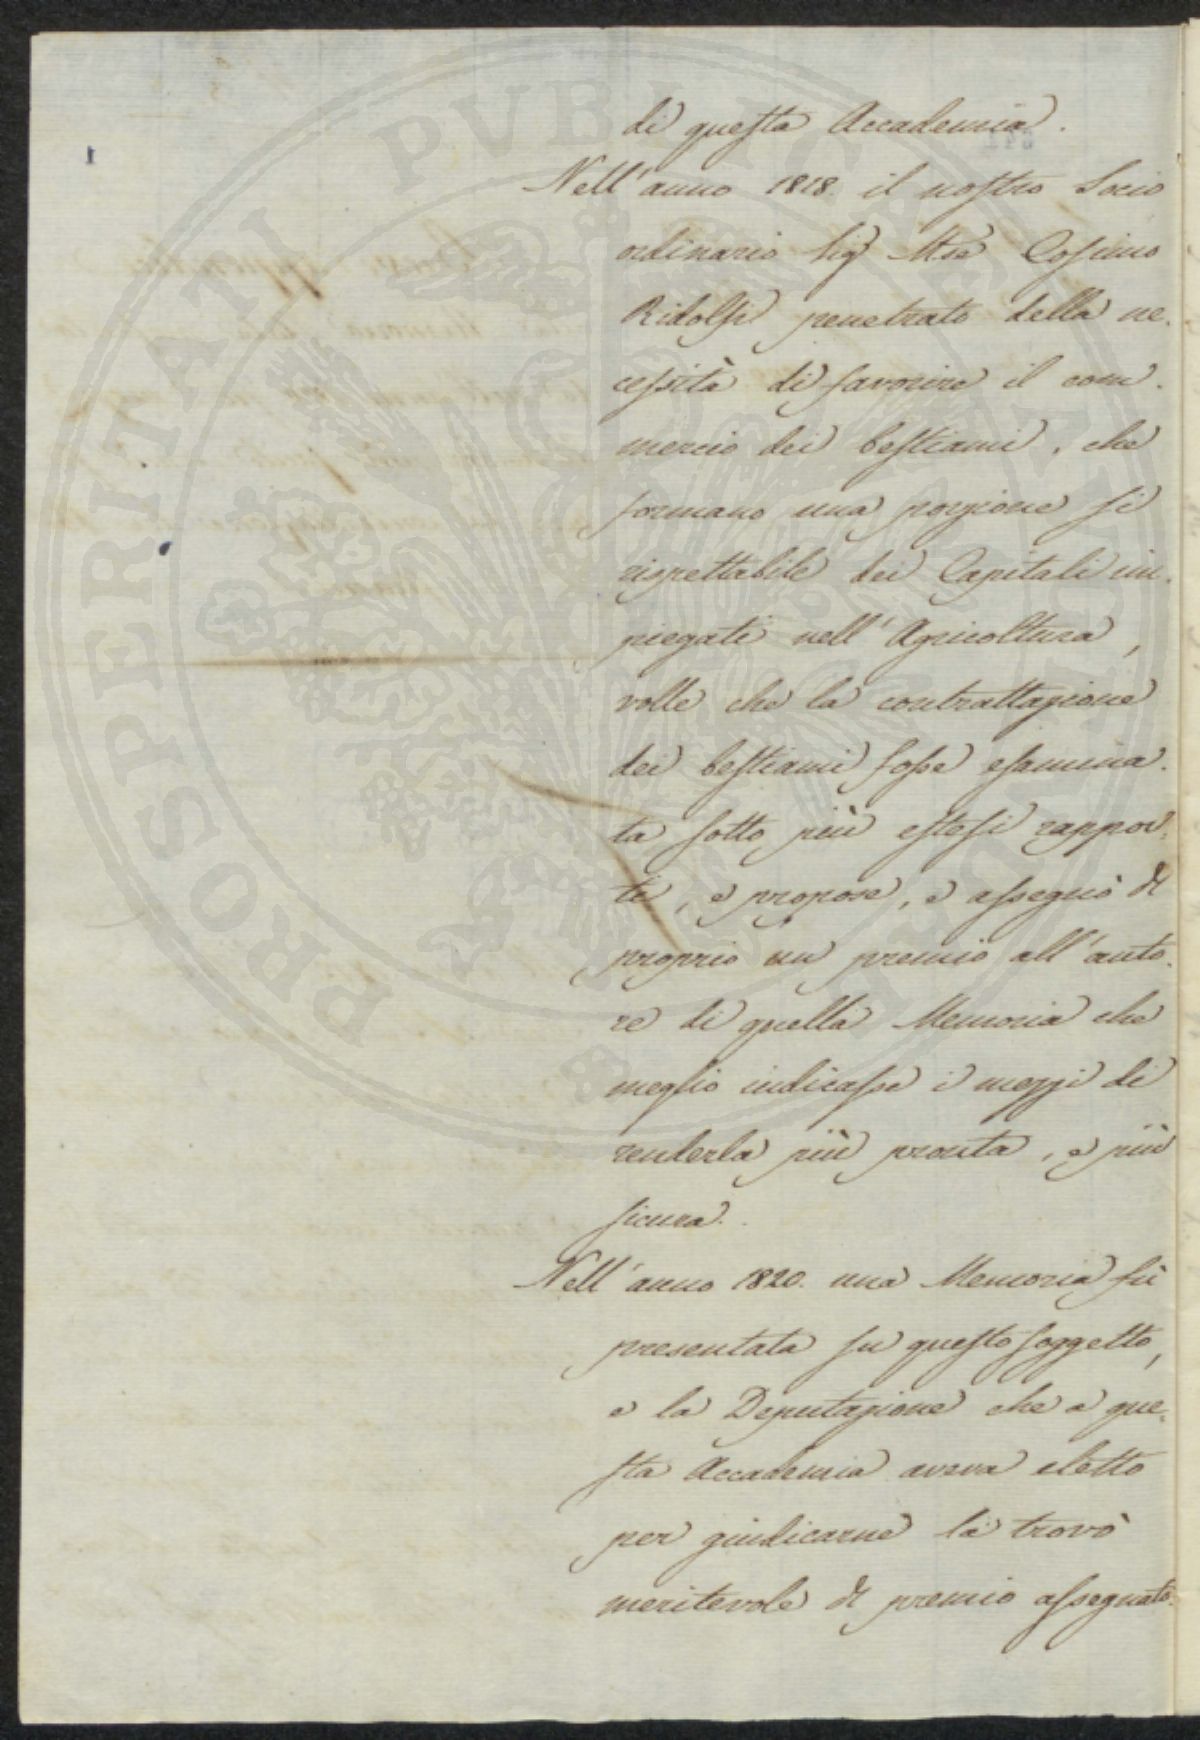 di questa Accademia.
Nell'anno 1818. il nostro Socio
ordinario Sig.r Mse Cosimo
Ridolfi penetrato della ne-
cessità di favorire il com-
mercio dei bestiami, che
formano una porzione si
rispettabile dei Capitali im-
piegati nell'Agricoltura,
volle che la contrattazione
dei bestiami fosse esamina-
ta sotto più estesi rappor-
ti, e propose, e assegnò di
proprio un premio all'auto-
re di quella Memoria che
meglio indicasse i mezzi di
renderla più pronta, e più
sicura.
Nell'anno 1820. una Memoria fù
presentata su questo soggetto,
e la Deputazione che a que-
sta Accademia aveva eletto
per giudicarne la trovò
meritevole di premio assegnato.
PROSPERITATI PUBLICAE
1